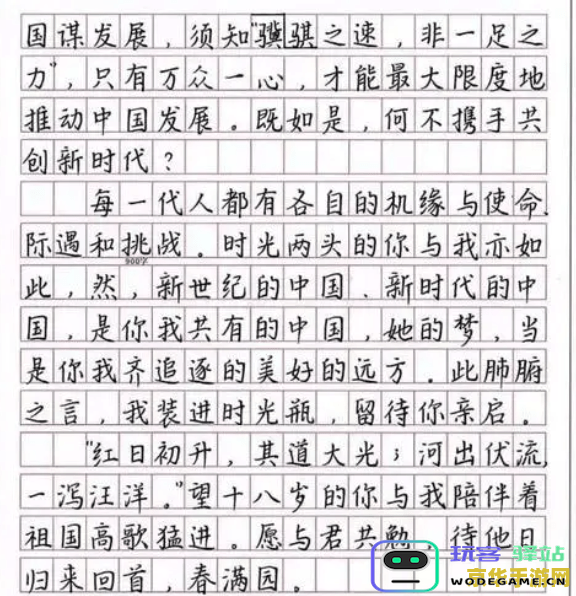 国谋发展，须知“骥骐之速，非一足之
力”，只有万众一心，才能最大限度地
推动中国发展。既如是，何不携手共
创新时代？
每一代人都有各自的机缘与使命、
际遇和挑战。时光两头的你与我亦如
900字
此，然，新世纪的中国、新时代的中
国，是你我共有的中国，她的梦，当
是你我齐追逐的美好的远方。此肺腑
之言，我装进时光瓶，留待你亲启。
“红日初升，其道大光；河出伏流，
一泻汪洋。”望十八岁的你与我陪伴着
祖国高歌猛进。愿与君共勉，待他日
归来回首，春满园。
玩客 驿站
WODEGAME.CN
京华手游网